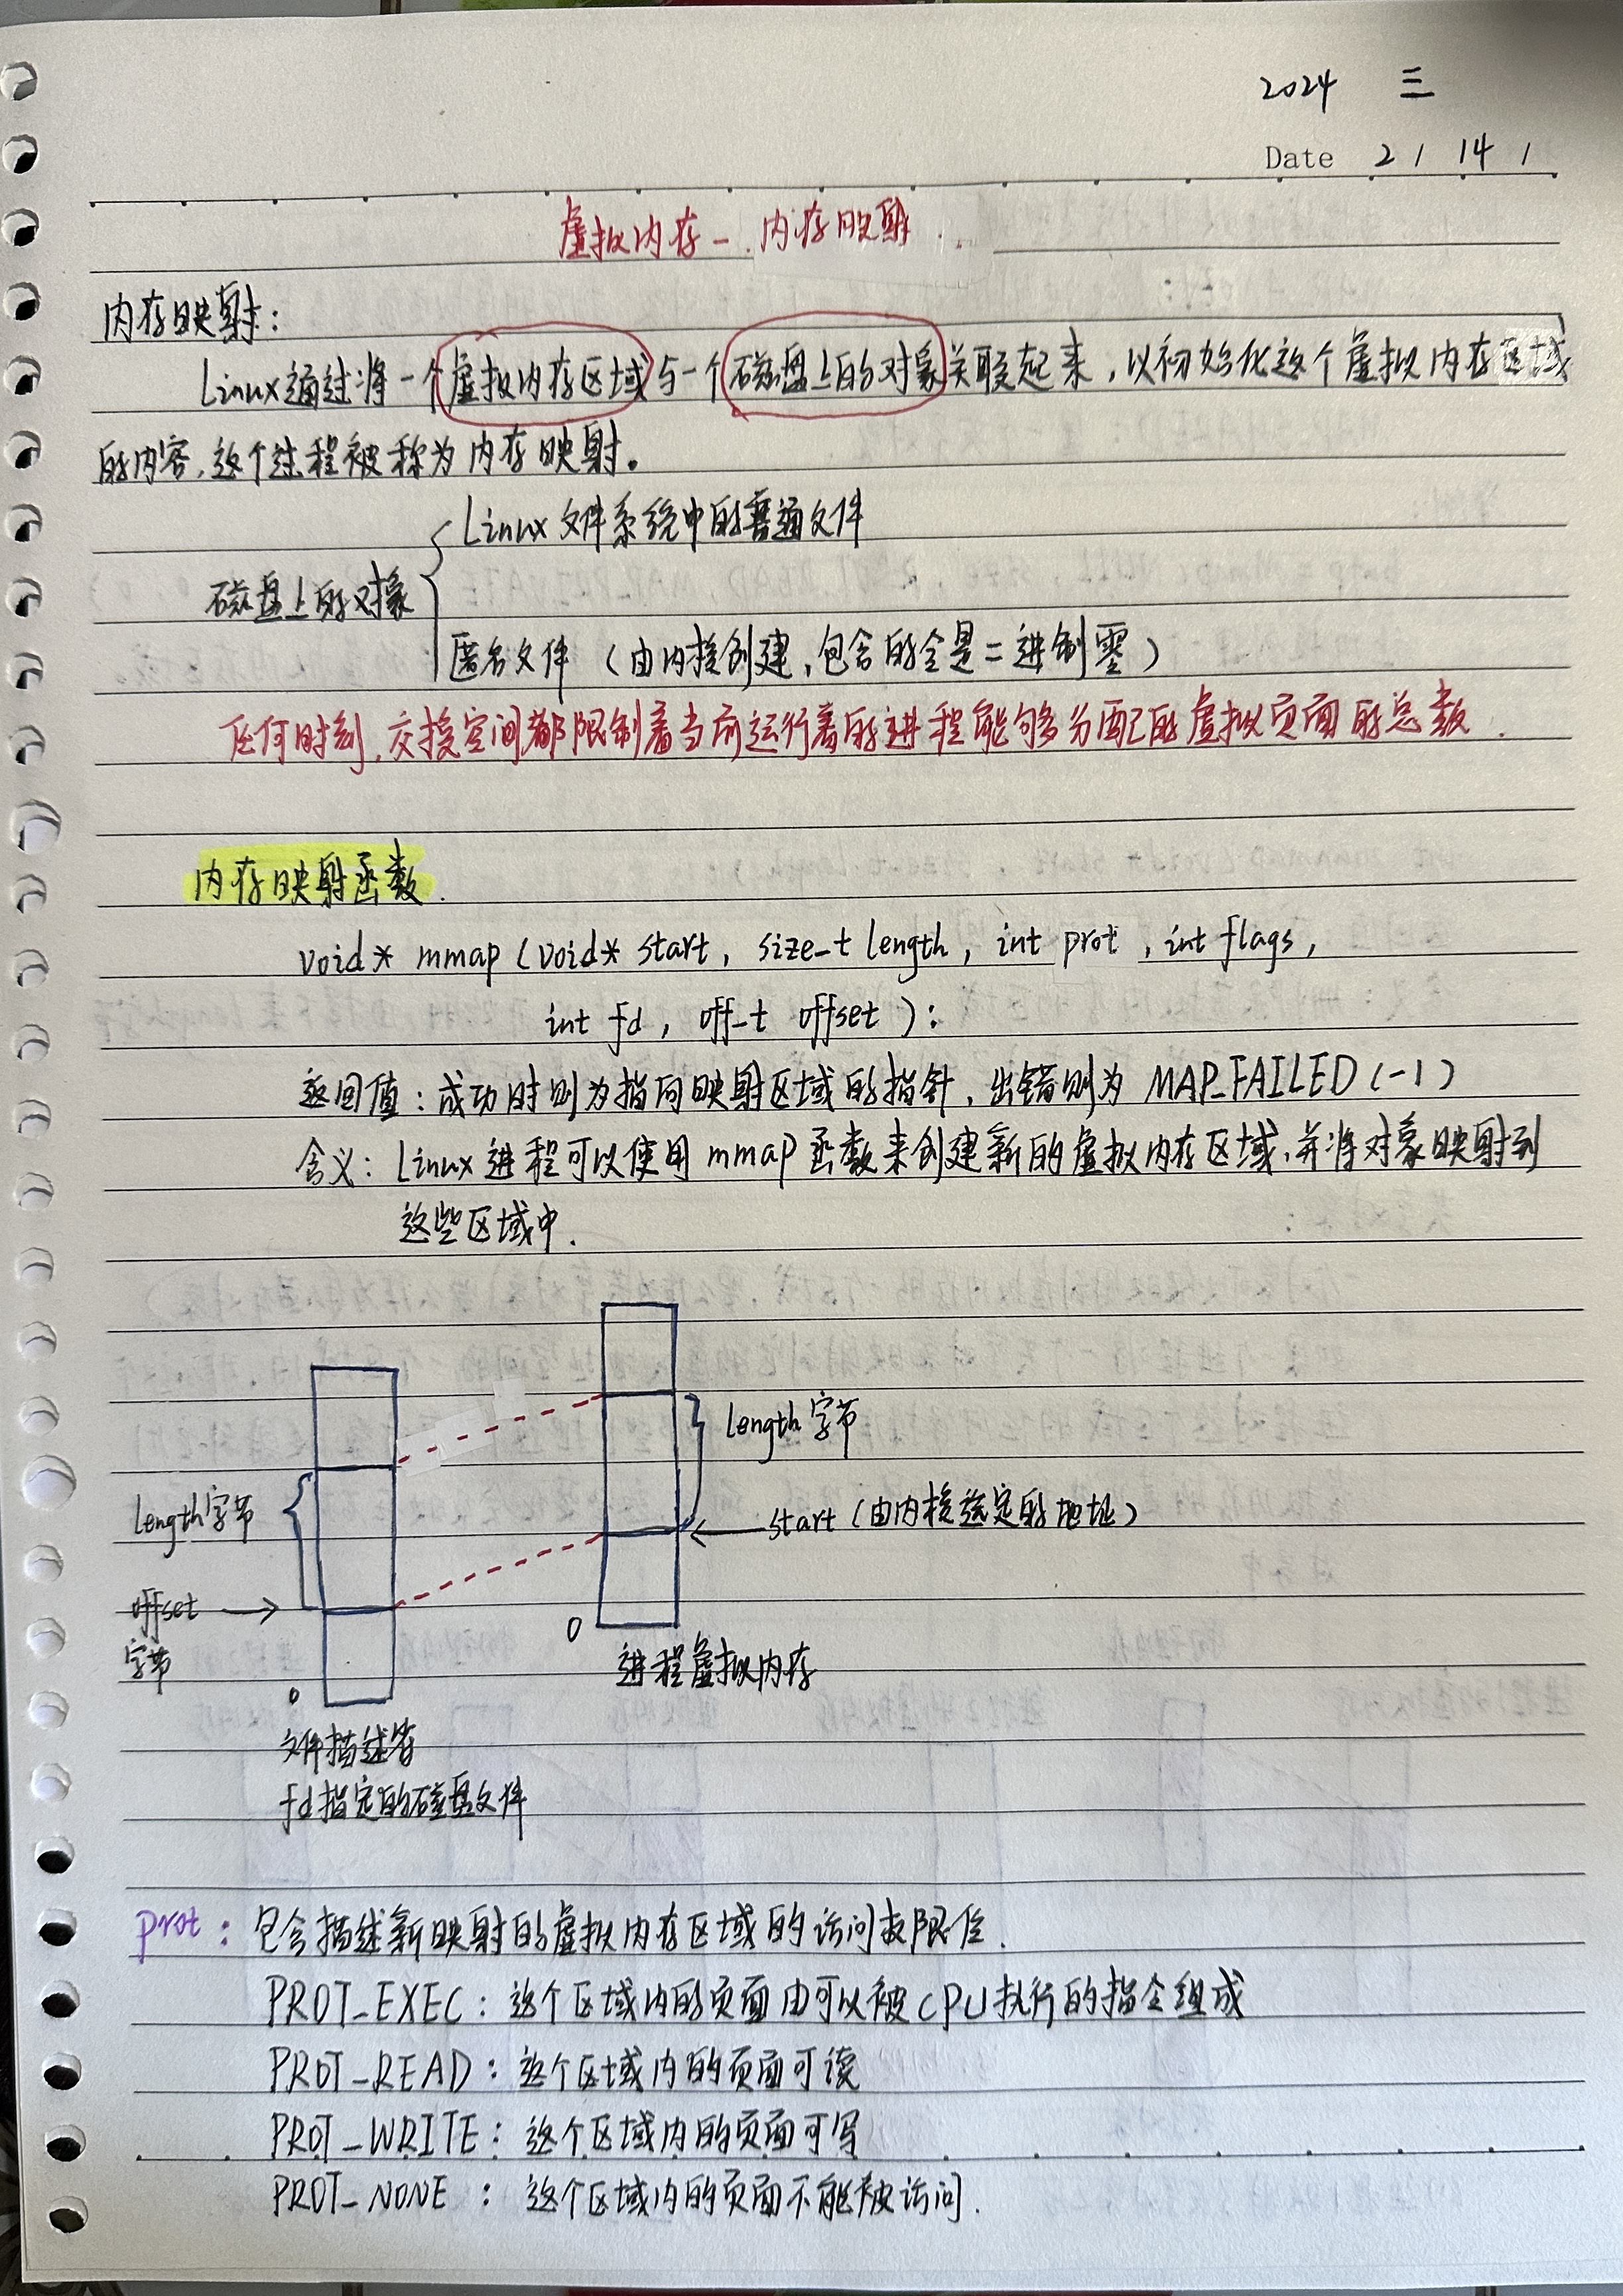 2024 三
Date 2 / 14 /
虚拟内存－内存映射
内存映射：
Linux通过将一个虚拟内存区域与一个磁盘上的对象关联起来，以初始化这个虚拟内存区域
的内容，这个过程被称为内存映射。
Linux 文件系统中的普通文件
磁盘上的对象
匿名文件（由内核创建，包含的全是二进制零）
任何时刻，交换空间都限制着当前运行着的进程能够分配的虚拟页面的总数．
内存映射函数．
void* mmap (void* start, size_t length, int prot, int flags,
int fd, off_t offset):
返回值：成功时则为指向映射区域的指针，出错则为 MAP_FAILED (-1)
含义：Linux 进程可以使用 mmap 函数来创建新的虚拟内存区域，并将对象映射到
这些区域中．
length 字节
length字节
start（由内核选定的地址）
offset
字节
0
进程虚拟内存
0
文件描述符
fd指定的磁盘文件
prot：包含描述新映射的虚拟内存区域的访问权限位．
PROT_EXEC：这个区域内的页面由可以被CPU执行的指令组成
PROT_READ：这个区域内的页面可读
PROT_WRITE：这个区域内的页面可写
PROT_NONE：这个区域内的页面不能被访问．